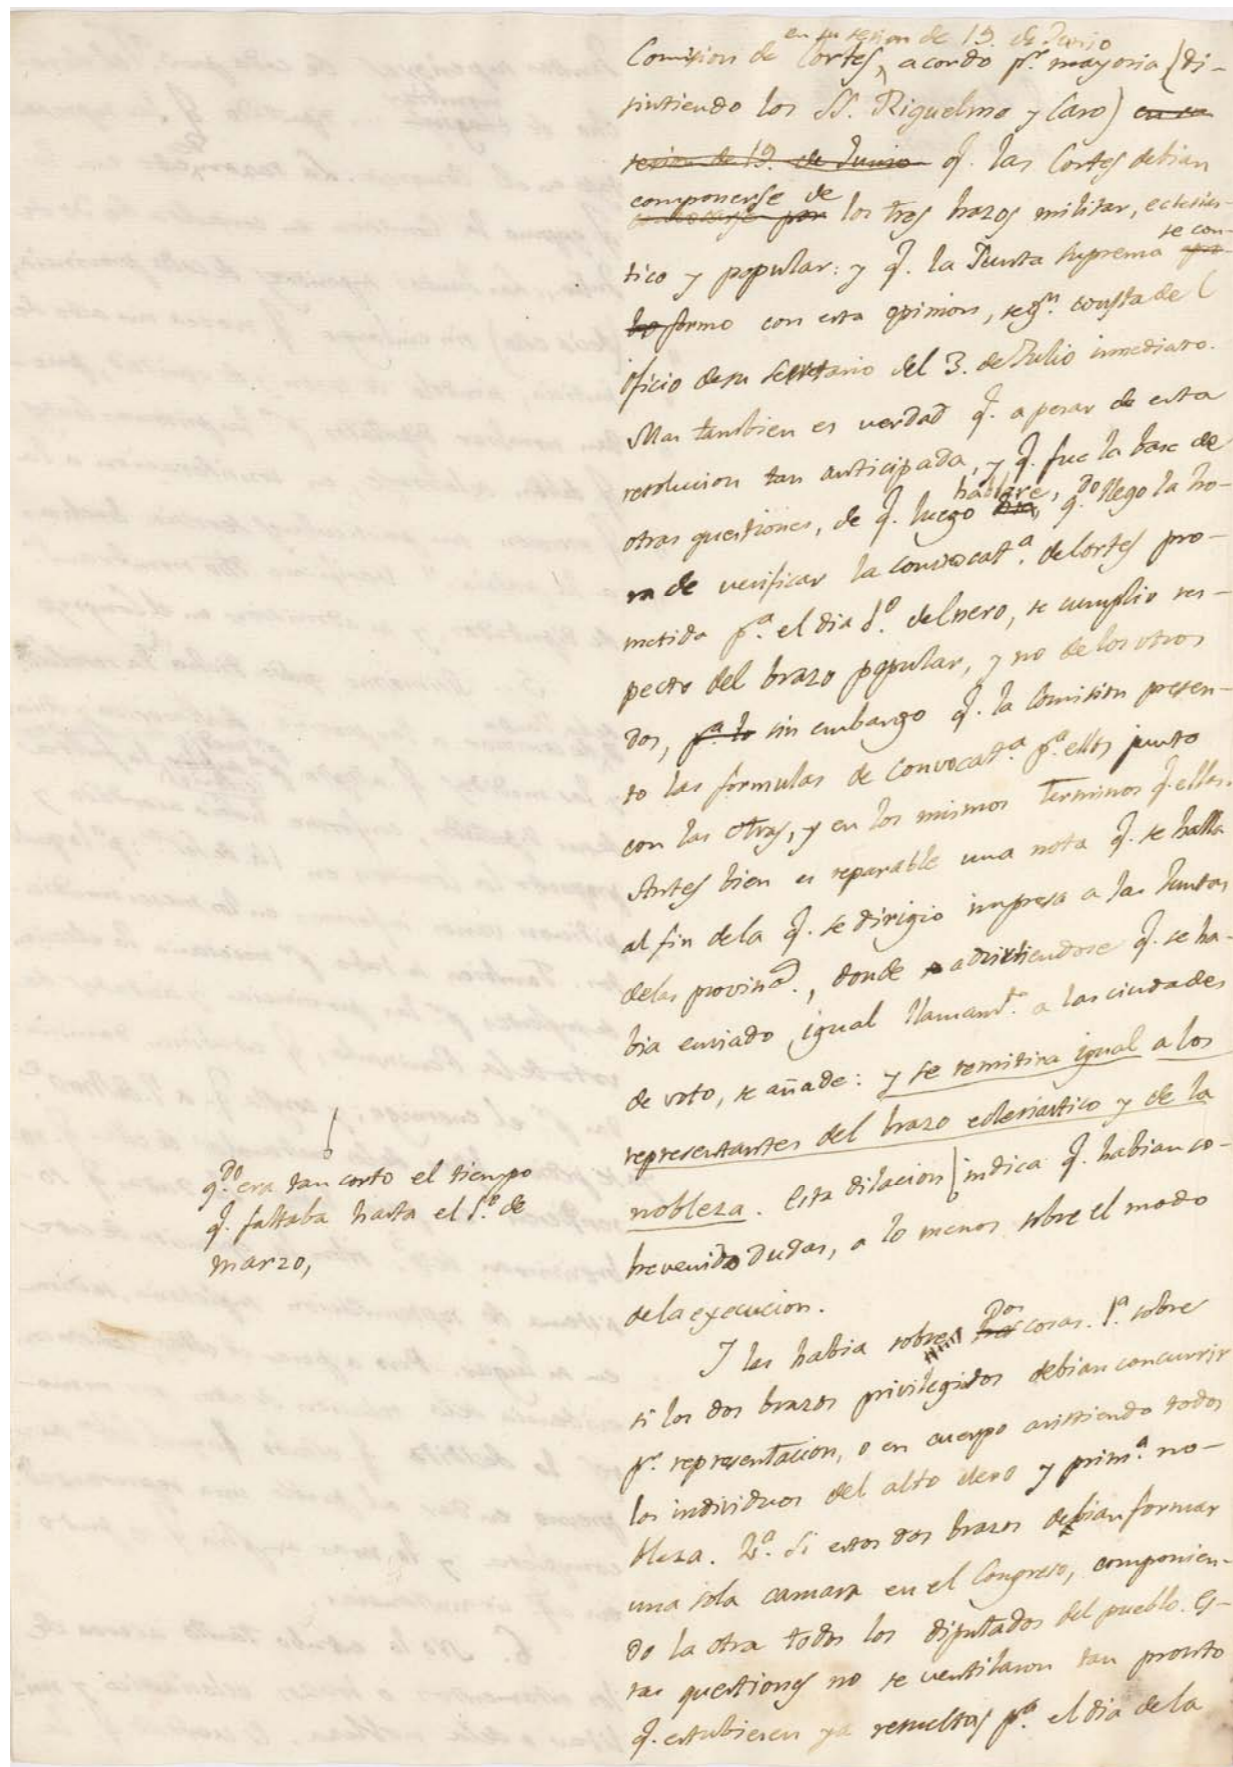 en su sesion de 19. de Junio
Comision de Cortes, acordo pr. mayoria (di-
sintiendo los SS. Riquelme y Caro) en su
sesion de 19. de Junio q. las Cortes debian
componerse de
los tres brazos militar, eclesias-
tico y popular: y q. la Junta Suprema se con-
formo con esta opinion, segn. consta del
oficio de su secretario del 3. de Julio inmediato.
Mas tambien es verdad q. a pesar de esta
resolucion tan anticipada, y q. fue la base de
otras questiones, de q. luego hablare, qdo. llego la ho-
ra de verificar la convocata. de Cortes pro-
metida pa. el dia 1o. de Enero, se cumplio res-
pecto del brazo popular, y no de los otros
dos, pa. lo sin embargo q. la Comision presen-
to las formulas de convocata. pa. ellos junto
con las otras, y en los mismos terminos q. ellas.
Antes bien es reparable una nota q. se halla
al fin de la q. se dirigio impresa a las Juntas
de las provins., donde advirtiendose q. se ha-
bia enviado igual llamamto. a las ciudades
de voto, se añade: y se remitira igual a los
representantes del brazo eclesiastico y de la
nobleza. Esta dilacion indica q. habian so-
brevenido dudas, a lo menos sobre el modo
de la execucion.
qdo. era tan corto el tiempo
q. faltaba hasta el 1o. de
marzo,
Y las habia sobre dos cosas. 1a. sobre
si los dos brazos privilegiados debian concurrir
pr. representacion, o en cuerpo asistiendo todos
los individuos del alto clero y prima. no-
bleza. 2a. Si estos dos brazos debian formar
una sola camara en el Congreso, componien-
do la otra todos los diputados del pueblo. Es-
tas questiones no se ventilaron tan pronto
q. estubiesen ya resueltas pa. el dia de la